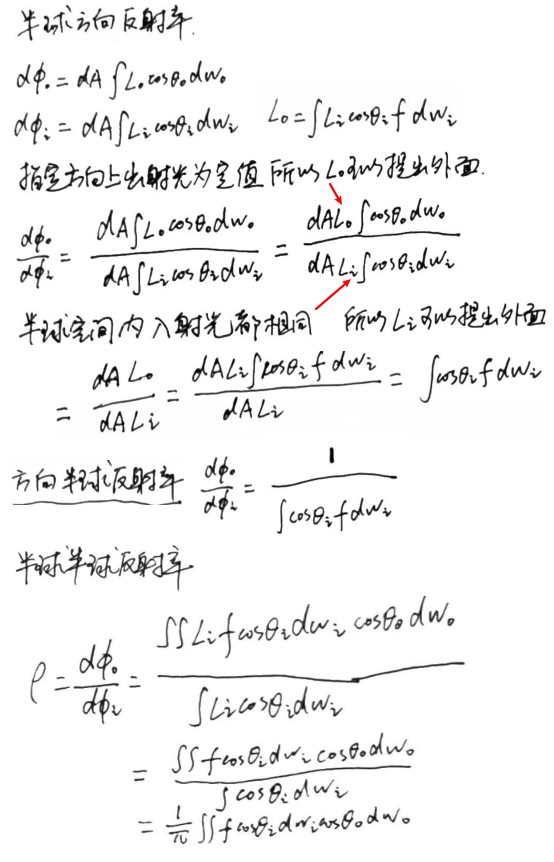 半球方向反射率.
dφ₀ = dA ∫L₀ cosθ₀ dw₀
dφᵢ = dA∫Lᵢ cosθᵢ dwᵢ   L₀ = ∫Lᵢ cosθᵢ f dwᵢ
指定方向上出射光为定值 所以 L₀可以提出外面.
dφ₀/dφᵢ = dA∫L₀ cosθ₀ dw₀ / dA∫Lᵢ cosθᵢ dwᵢ = dAL₀∫cosθ₀ dw₀ / dALᵢ∫cosθᵢ dwᵢ
半球空间内入射光都相同 所以 Lᵢ可以提出外面
= dA L₀ / dA Lᵢ = dALᵢ∫cosθᵢ f dwᵢ / dALᵢ = ∫cosθᵢ f dwᵢ
方向半球反射率 dφ₀/dφᵢ = 1 / ∫cosθᵢ f dwᵢ
半球半球反射率
ρ = dφ₀/dφᵢ = ∫∫Lᵢ f cosθᵢ dwᵢ cosθ₀ dw₀ / ∫Lᵢ cosθᵢ dwᵢ
= ∫∫ f cosθᵢ dwᵢ cosθ₀ dw₀ / ∫cosθᵢ dwᵢ
= 1/π ∫∫ f cosθᵢ dwᵢ cosθ₀ dw₀